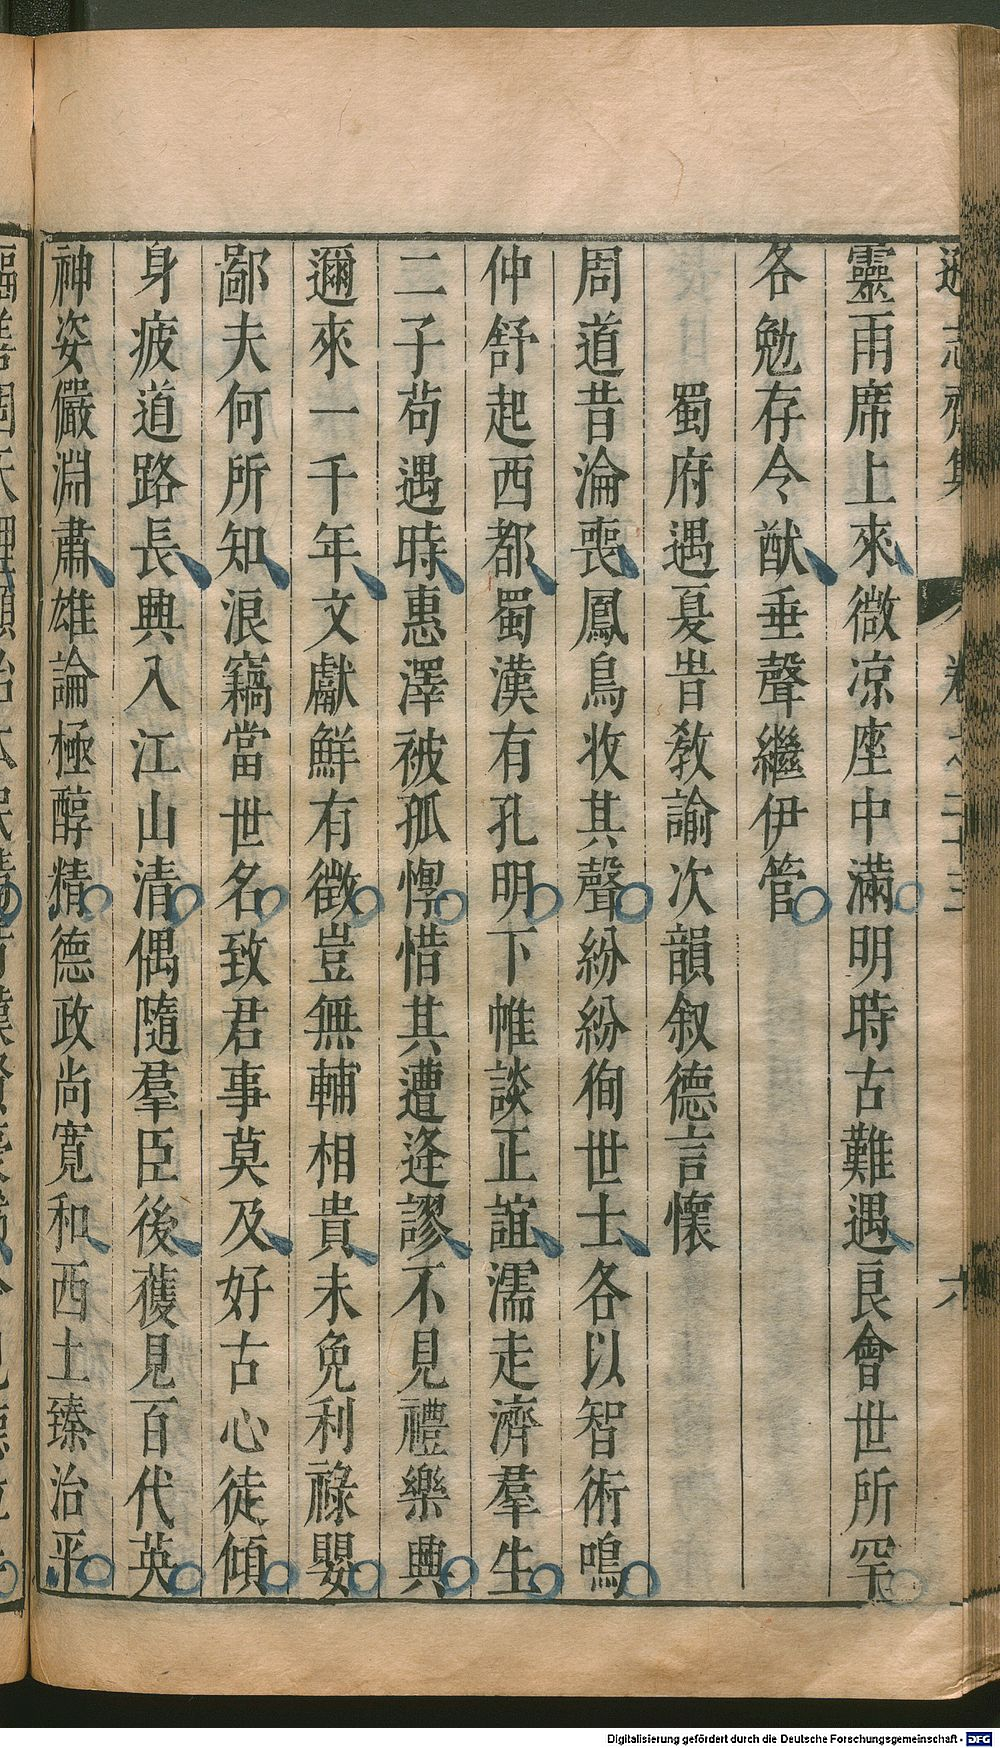 遜志齋集
卷之二十三
六
靈雨席上來微凉座中滿明時古難遇良會世所罕
各勉存令猷垂聲繼伊管
蜀府遇夏旹敎諭次韻叙德言懷
周道昔淪喪鳳鳥收其聲紛紛徇世士各以智術鳴
仲舒起西都蜀漢有孔明下帷談正誼濡走濟羣生
二子苟遇時惠澤被孤惸惜其遭逢謬不見禮樂興
邇來一千年文獻鮮有徵豈無輔相貴未免利祿嬰
鄙夫何所知浪竊當世名致君事莫及好古心徒傾
身疲道路長興入江山清偶隨羣臣後獲見百代英
神姿儼淵肅雄論極醇精德政尚寬和西土臻治平
Digitalisierung gefördert durch die Deutsche Forschungsgemeinschaft - DFG